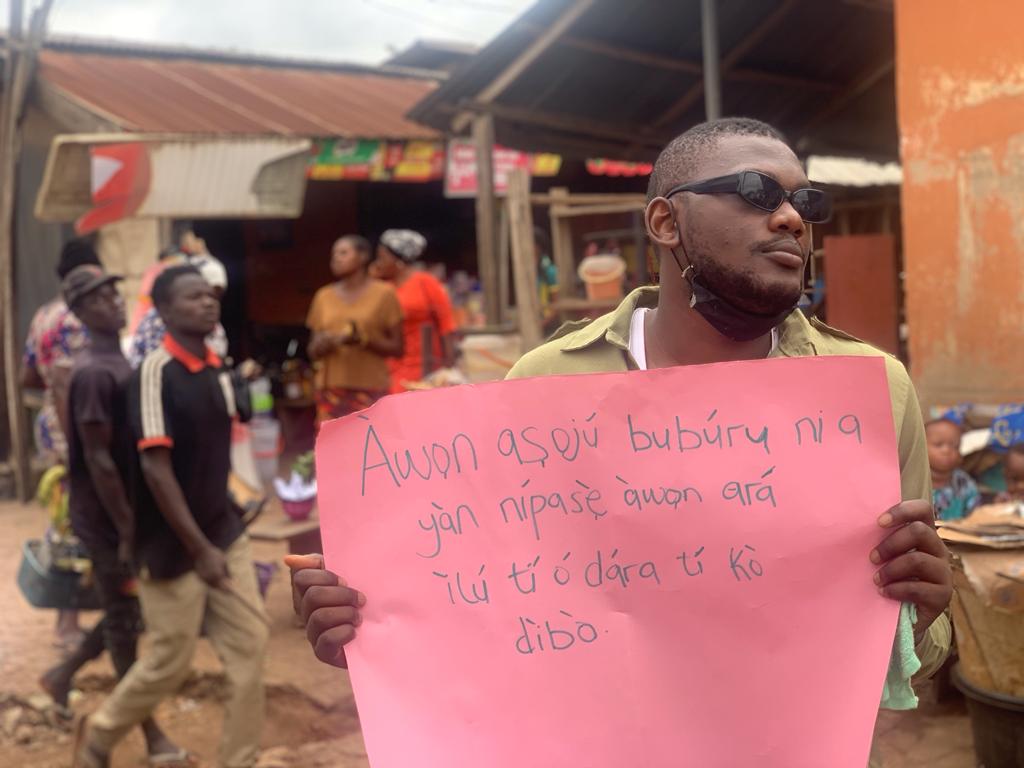 Àwọn aṣojú bubúrụ ni a
yàn nípasẹ̀ àwọn ará
ìlú tí ó dára tí kò
dìbò.